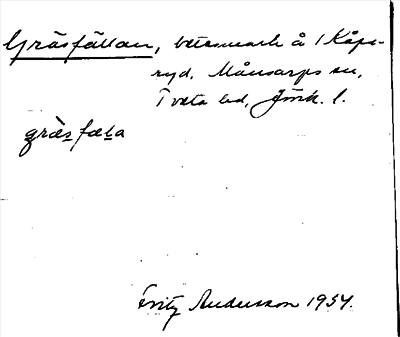 Gräsfällan, betesmark å 1 Kåpe-
ryd, Månsarps sn,
Tveta hd, Jönk. l.
græ̀sfæḷa
Fritz Andersson 1954.